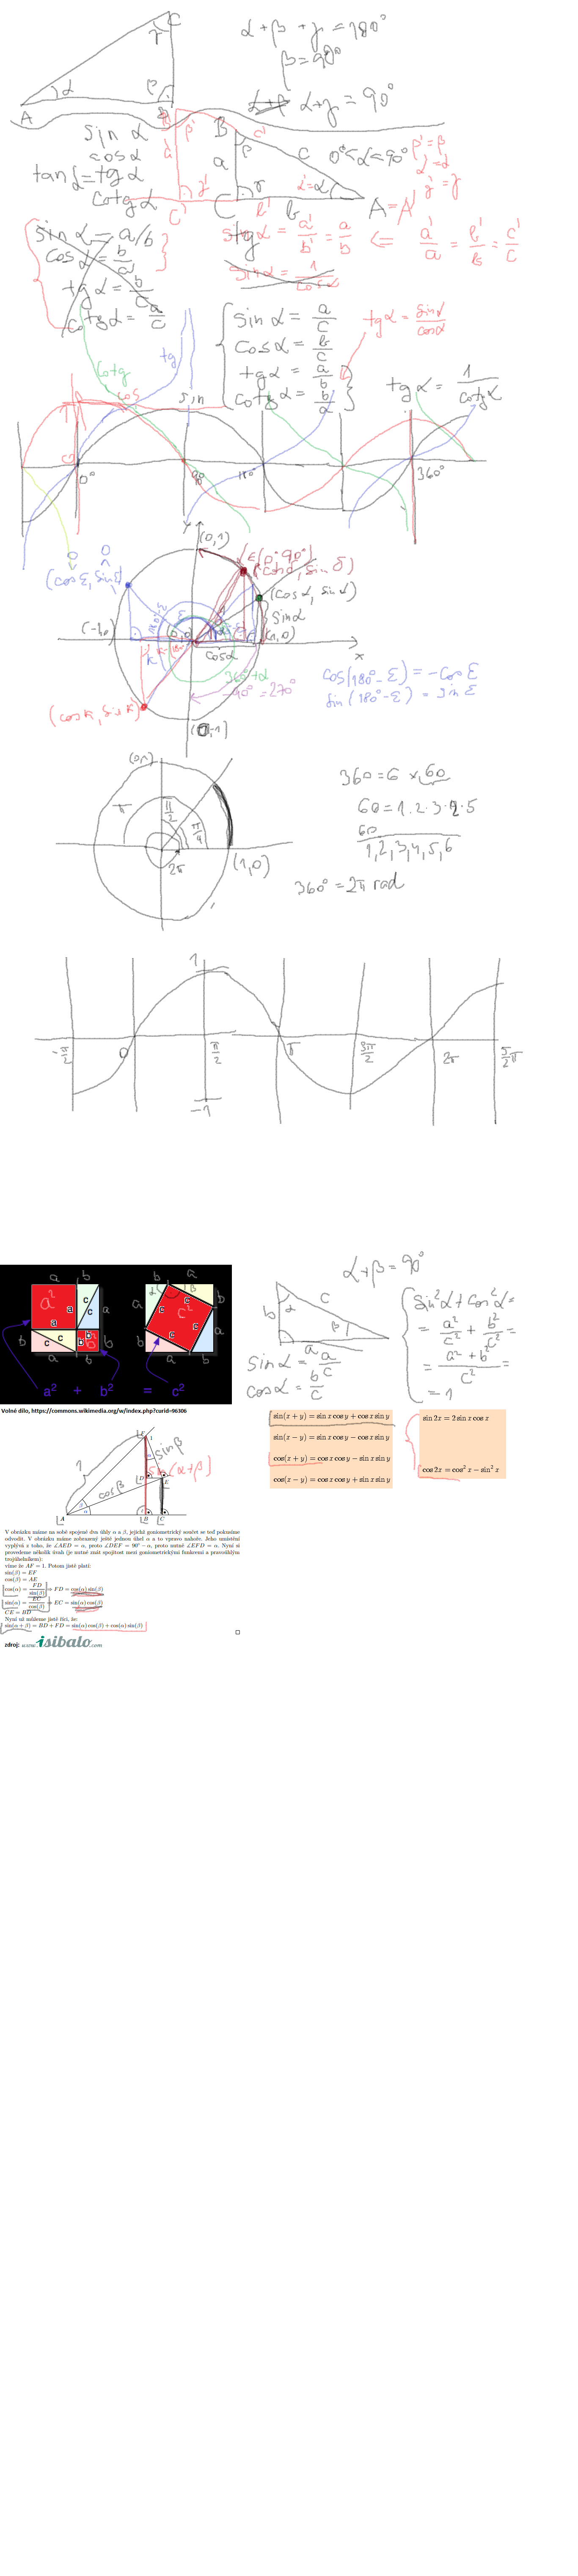 α + β + γ = 180°
β = 90°
α + γ = 90°
A
α
β
γ
C
sin α
cos α
tan α = tg α
cotg α
B
β
a
c
C
b
A = A'
0° < α < 90°
β' = β
α' = α
γ' = γ
a'
β'
c'
C'
γ'
b'
α' = α
sin α = a/b
cos α = b/a
tg α = b/c
cotg α = a/c
tg α = a'/b' = a/b ⇐ a'/a = b'/b = c'/c
sin α = 1/cos α
sin α = a/c
cos α = b/c
tg α = a/b
cotg α = b/a
tg α = sin α/cos α
tg α = 1/cotg α
cotg
cos
tg
sin
0°
90°
180°
360°
y
(0,1)
∈(0°,90°)
(cos δ, sin δ)
(cos ε, sin ε)
(cos α, sin α)
sin α
(1,0)
(0,0)
cos α
x
360°+α
-90° = 270°
(cos κ, sin κ)
cos(180° - ε) = -cos ε
sin(180° - ε) = sin ε
π
π/2
π/4
2π
(1,0)
360 = 6 × 60
60 = 1.2.3.2.5
60
1,2,3,4,5,6
360° = 2π rad
1
-π/2
0
π/2
π
3π/2
2π
5/2 π
-1
α + β = 90°
a b
a²
a
c
b
b²
c²
a² + b² = c²
b
α
c
β
a
sin α = a/c
cos α = b/c
sin²α + cos²α =
= a²/c² + b²/c² =
= (a² + b²)/c² =
= 1
Volné dílo, https://commons.wikimedia.org/w/index.php?curid=96306
sin(x + y) = sin x cos y + cos x sin y
sin(x − y) = sin x cos y − cos x sin y
cos(x + y) = cos x cos y − sin x sin y
cos(x − y) = cos x cos y + sin x sin y
sin 2x = 2 sin x cos x
cos 2x = cos² x − sin² x
1
sin β
sin(α+β)
cos β
A
B
C
D
E
V obrázku máme na sobě spojené dva úhly α a β, jejichž goniometrický součet se teď pokusíme
odvodit. V obrázku máme zobrazený ještě jednou úhel α a to vpravo nahoře. Jeho umístění
vyplývá z toho, že ∡AED = α, proto ∡DEF = 90° − α, proto nutně ∡EFD = α. Nyní si
provedeme několik úvah (je nutné znát spojitost mezi goniometrickými funkcemi a pravoúhlým
trojúhelníkem):
víme že AF = 1. Potom jistě platí:
sin(β) = EF
cos(β) = AE
cos(α) = FD/sin(β) ⇒ FD = cos(α) sin(β)
sin(α) = EC/cos(β) ⇒ EC = sin(α) cos(β)
CE = BD
Nyní už můžeme jistě říci, že:
sin(α + β) = BD + FD = sin(α) cos(β) + cos(α) sin(β)
zdroj: www.isibalo.com